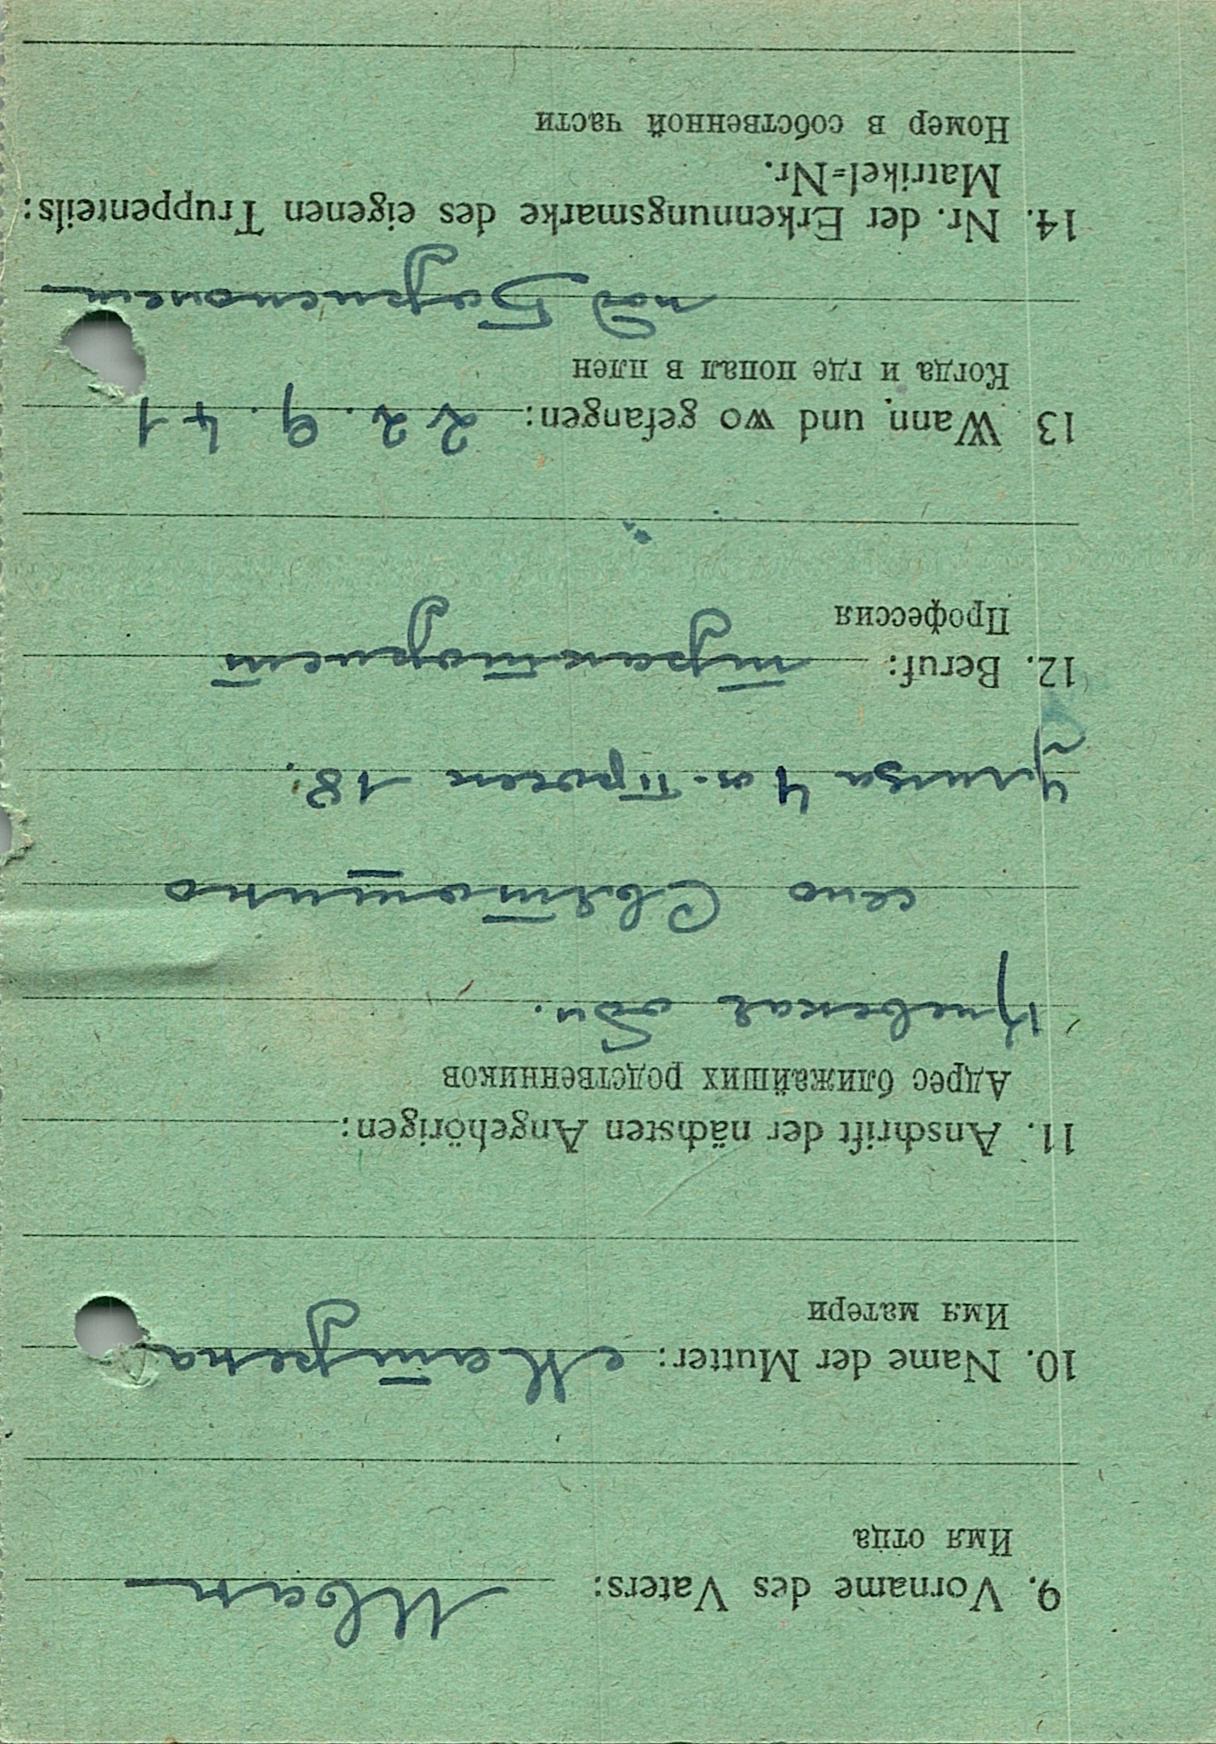 9. Vorname des Vaters: Иван
Имя отца
10. Name der Mutter: Матрена
Имя матери
11. Anschrift der nächsten Angehörigen:
Адрес ближайших родственников
Киевская обл.
село Святошино
Улица 4 я. Просек 18.
12. Beruf: тракторист
Профессия
13 Wann und wo gefangen: 22. 9. 41
Когда и где попал в плен
под Борисполем
14. Nr. der Erkennungsmarke des eigenen Truppenteils:
Matrikel=Nr.
Номер в собственной части